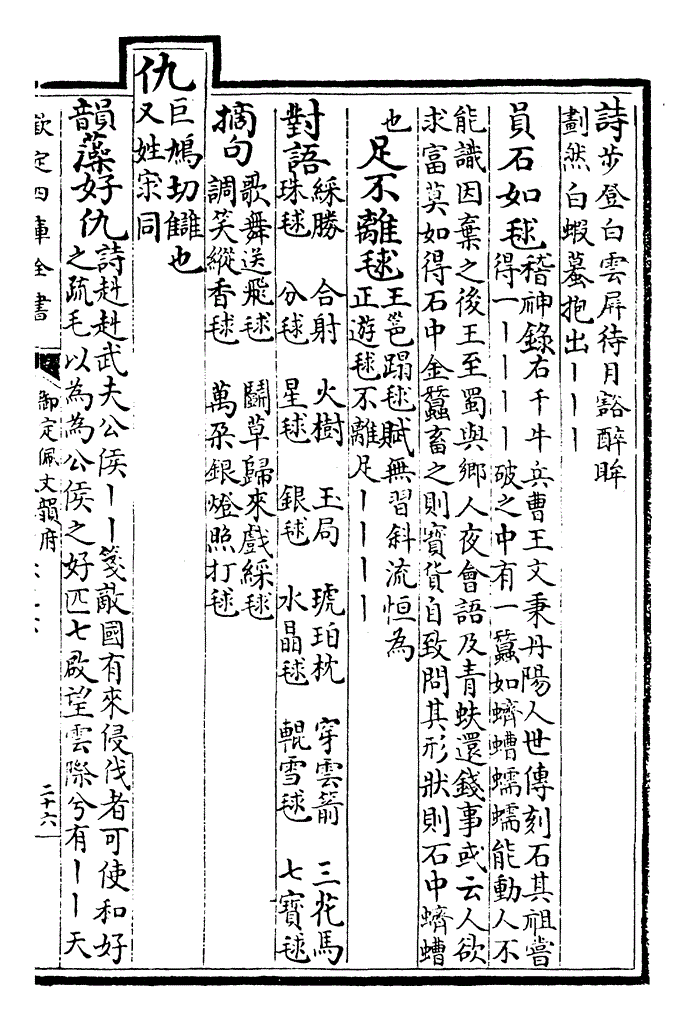 詩步登白雲屛待月豁醉眸
劃然白蝦蟇抱出丨丨丨
員石如毬稽神錄右千牛兵曹王文秉丹陽人世傳刻石其祖嘗
得一丨丨丨丨破之中有一蠶如蠐螬蠕蠕能動人不
能識因棄之後王至蜀與鄉人夜會語及青蚨還錢事或云人欲
求富莫如得石中金蠶畜之則寶貨自致問其形狀則石中蠐螬
也足不離毬王邕蹋毬賦無習斜流恒為
正遊毬不離足丨丨丨丨
對語綵勝 合射 火樹 玉局 琥珀枕 穿雲箭 三花馬
珠毬 分毬 星毬 銀毬 水晶毬 輥雪毬 七寶毬
摘句歌舞送飛毬 鬭草歸來戲綵毬
調笑縱香毬 萬朶銀燈照打毬
仇巨鳩切讎也
又姓宋同
韻藻好仇詩赳赳武夫公侯丨丨箋敵國有來侵伐者可使和好
之疏毛以為為公侯之好匹七啟望雲際兮有丨丨天
欽定四庫全書
御定佩文韻府
二十六